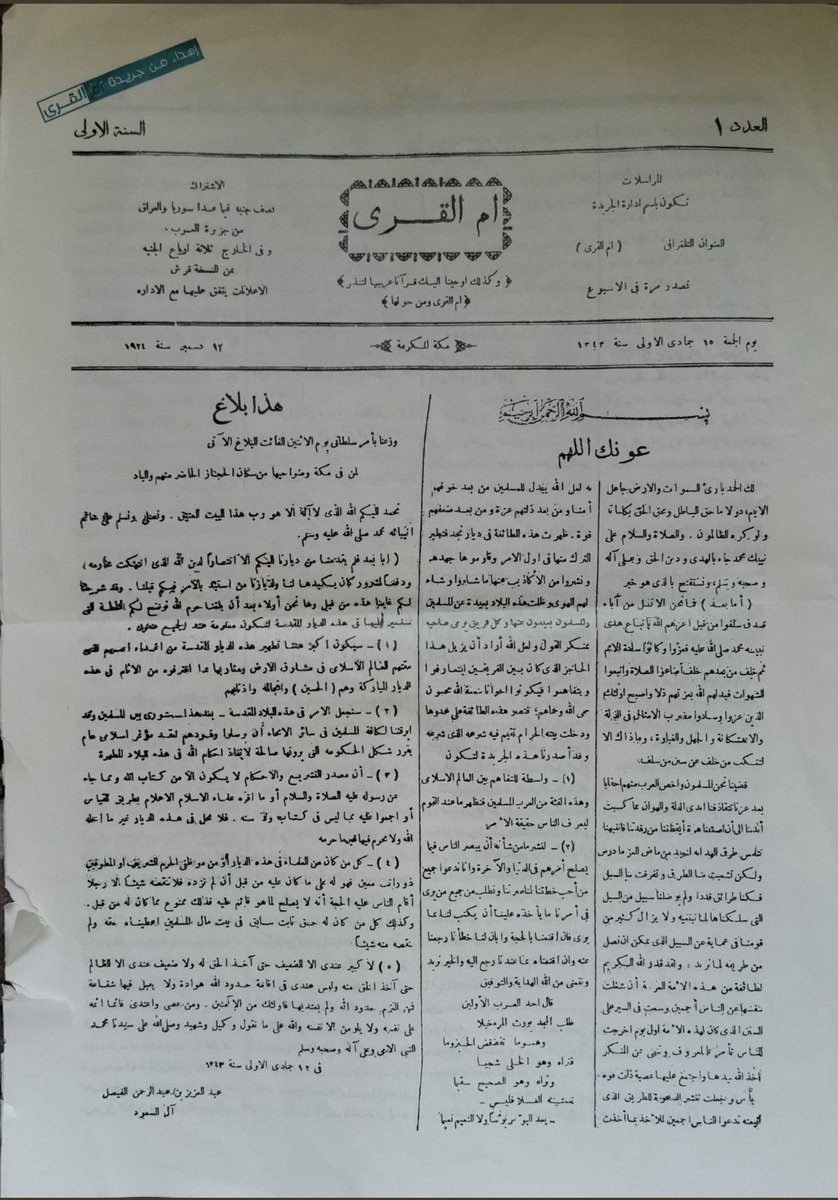 اهداء من جريدة أم القرى
العدد ١
السنة الاولى
المراسلات
تكون باسم ادارة الجريدة
العنوان التلغرافى (ام القرى)
تصدر مرة فى الاسبوع
ام القرى
﴿ وكذلك اوحينا اليك قرآنا عربيا لتنذر ﴾
﴿ ام القرى ومن حولها ﴾
الاشتراك
نصف جنيه فيما عدا سوريا والعراق
من جزيرة العرب.
وفى الخارج ثلاثة ارباع الجنيه
ثمن النسخة قرش
الاعلانات يتفق عليها مع الاداره
يوم الجمعة ١٥ جمادى الاولى سنة ١٣٤٣
مكة المكرمة
١٢ دسمبر سنة ١٩٢٤
بسم الله الرحمن الرحيم
عونك اللهم
لك الحمد بارئ السموات والارض جاعل
الايام دولا ماحق الباطل ومحق الحق بكلماته
ولو كره الظالمون. والصلاة والسلام على
نبيك محمد جاء بالهدى ودين الحق وعلى آله
وصحبه وسلم ونستفتح بالذى هو خير
(أما بعد) فانحن الا نسل من آباء
صدق سلفوا من قبل اعزهم الله باتباع هدى
نبيه محمد صلى الله عليه فعزوا وكانوا سلالة الايم
ثم خلف من بعدهم خلف أضاعوا الصلاة واتبعوا
الشهوات فبدلهم الله بعزتهم ذلا واصبح اولئك
الذين عزوا وسادوا مضرب الامثال فى الذلة
والاستكانة والجهل والغباوة، وماذاك الا
لتنكب من خلف عن سنن من سلف.
قضينا نحن المسلمون واخص العرب منهم احقابا
بعد عزنا تتقاذفنا ايدى الذلة والهوان مما كسبت
أنفسنا الى أن
نلتمس طرق الهداية لنعيد من ماضى العز ما درس
ولكن تشعبت بنا الطرق وتفرقت بنا السبل
فكنا طرائق قددا ولم يوصلنا سبيل من السبل
التى سلكناها لما نبتغيه ولا يزال كثير من
قومنا فى عماية عن السبيل الذى يمكن ان نصل
من طريقه لما نريد. ولقد قدر الله الكريم
لطائفة من هذه الامة العربية أن شغلت
نفسها عن الناس أجمعين وسعت فى السير على
السنن الذى كان لهذه الامة اول يوم اخرجت
للناس تأمر بالمعروف وتنهى عن المنكر
أخذ الله بيدها واجتمع عليها عصبة ذات قوة.
بأس وجعلت تنشر الدعوة للطريق الذى
اتبعته تدعوا الناس اجمعين للاخذ بما أخذت
به لعل الله يبدل للمسلمين من بعد خوفهم
أمنا ومن بعد ذلتهم عزة ومن بعد ضعفهم
قوة. ظهرت هذه الطائفة فى ديار نجد فتطير
الترك منها فى اول الامر وقاوموها جهدهم
ونشروا من الأكاذيب عنها ما شاءوا وشاء
لهم الهوى وظلت هذه البلاد بعيدة عن المسلمين
والمسلمون بعيدون عنها وكل فريق يرمى صاحبه
بمنكر القول ولعل الله أراد أن يزيل هذا
الحاجز الذى كان بين الفريقين ليتعارفوا
ويتفاهموا فيكونوا اخوانا بنعمة الله محمون
حمى الله وحماهم؛ فنصر هذه الطائفة على عدوها
ودخلت بيته الحرام تقيم فيه شرعه الذى شرعه
وقد أصدرنا هذه الجريدة لتكون
(١) – واسطة للتفاهم بين العالم الاسلامى
وهذه الفئة من العرب المسلمين فنظهر ما عند القوم
ليعرف الناس حقيقة الامر
(٢) – لننشر ما من شأنه أن يبصر الناس فيما
يصلح أمرهم فى الدنيا والآخرة وانا ندعوا جميع
من أحب خطتنا لمناصرتنا ونطلب من جميع من يرى
فى أمرنا ما يأخذه علينا أن يكتب لنا بما
يرى فان اقنعنا بالحجة وبان لنا خطأنا رجعنا
عنه وان اقتنعناه بما عندنا رجع اليه والخير نريد
ونتمنى من الله الهداية والتوفيق
قال احد العرب الأولين
طلب المجد يورث المرء خبلا
وهموما تقضقض الحيزوما
فتراه وهو الخلى شجيا
وتراه وهو الصحيح سقيما
– بعد البؤس بؤسا ولا النعيم نعيما
هذا بلاغ
وزعنا بأمر سلطانى يوم الاثنين الفائت البلاغ الآتى
لمن فى مكة وضواحيها من سكان الحجاز الحاضر منهم والباد
نحمد اليكم الله الذى لا آله الا هو رب هذا البيت العتيق. ونصلى ونسلم على خاتم
انبيائه محمد صلى الله عليه وسلم.
(أما بعد فلم يقدمنا من ديارنا اليكم الا انتصارا لدين الله الذى انتهكت محارمه؛
ودفعا لشرور كان يكيدها لنا ولديارنا من استبد بالأمر فيكم قبلنا. وقد شرحنا
لكم غايتنا هذه من قبل وها نحن أولاء بعد أن بلغنا حرم الله نوضح لكم الخطة التى
سنسير عليها فى هذه الديار المقدسة لتكون معلومة عند الجميع فنقول.
(١) – سيكون أكبر همنا تطهير هذه الديار المقدسة من اعداء انفسهم الذين
مقتهم العالم الاسلامى فى مشارق الارض ومغاربها بما اقترفوه من الآثام فى هذه
الديار المباركة وهم (الحسين) وانجاله واذنابهم
(٢) – سنجعل الامر فى هذه البلاد المقدسة – بعد هذا – شورى بين المسلمين وقد
ابرقنا لكافة المسلمين فى سائر الانحاء أن يرسلوا وفودهم لعقد مؤتمر اسلامى عام
يقرر شكل الحكومه التى يرونها صالحة لانفاذ احكام الله فى هذه البلاد المطهرة
(٣) – أن مصدر التشريع والاحكام لا يكون الا من كتاب الله ومما جاء
عن رسوله عليه الصلاة والسلام أو ما اقره علماء الاسلام الاعلام بطريق القياس
أو اجمعوا عليه مما ليس فى كتاب ولا سنه. فلا يحل فى هذه الديار غير ما احله
الله ولا يحرم فيها غير ما حرمه
(٤) – كل من كان من العلماء فى هذه الديار أو من موظفى الحرم الشريف او المطوفين
ذو راتب معين فهو له على ما كان عليه من قبل أن لم نزده فلا ننقصه شيئا الا رجلا
أقام الناس عليه الحجة أنه لا يصلح لما هو قائم عليه فذلك ممنوع مما كان له من قبل.
وكذلك كل من كان له حق ثابت سابق فى بيت مال المسلمين اعطيناه حقه ولم
ننقصه منه شيئا
(٥) لا كبير عندى الا الضعيف حتى آخذ الحق له ولا ضعيف عندى الا الظالم
حتى آخذ الحق منه وليس عندى فى اقامة حدود الله هوادة ولا يقبل فيها شفاعة
فمن التزم حدود الله ولم يتعدها فاولئك من الآمنين. ومن عصى واعتدى فانما اثمه
على نفسه ولا يلومن الا نفسه والله على ما نقول وكيل وشهيد وصلى الله على سيدنا محمد
النبى الامى وعلى آله وصحبه وسلم
فى ١٢ جمادى الاولى سنة ١٣٤٣
عبد العزيز بن عبد الرحمن الفيصل
آل السعود